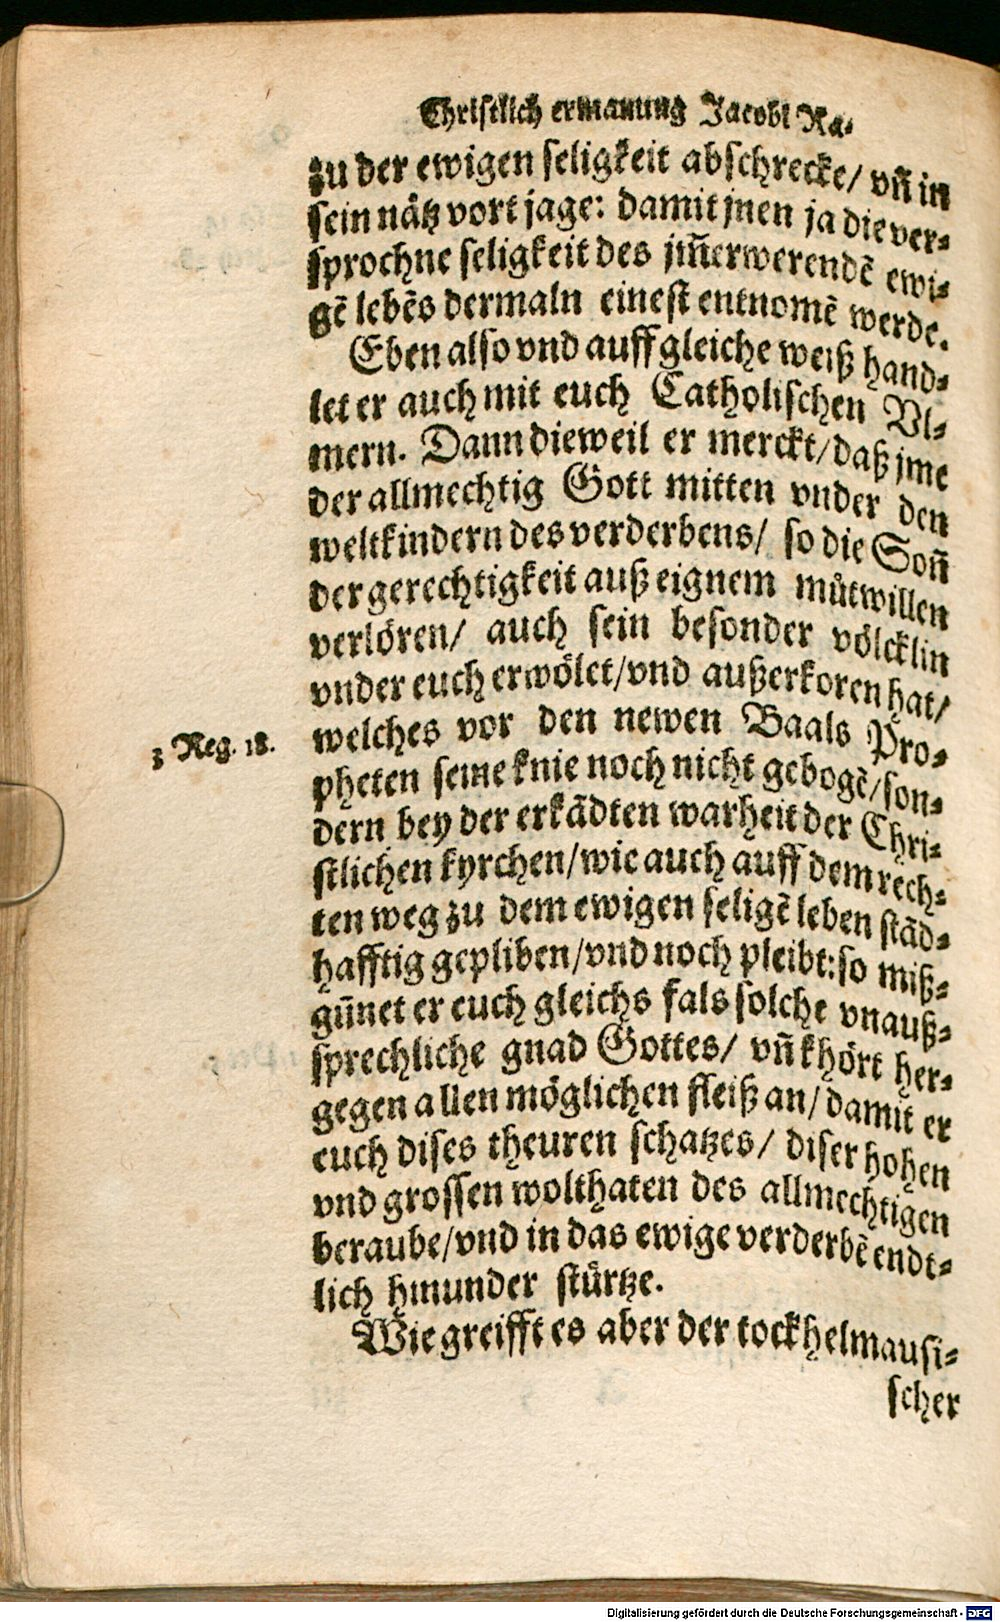 Christlich ermanung Jacobi Ra-
zu der ewigen seligkeit abschrecke/ vn̄ in
sein nätz vort jage: damit jnen ja die ver-
sprochne seligkeit des jm̄erwerendē ewi-
gē lebēs dermaln einest entnomē werde.
Eben also vnd auff gleiche weiß hand-
let er auch mit euch Catholischen Vl-
mern. Dann dieweil er merckt/ daß jme
der allmechtig Gott mitten vnder den
weltkindern des verderbens/ so die Son̄
der gerechtigkeit auß eignem můtwillen
verlören/ auch sein besonder völcklin
vnder euch erwölet/ vnd außerkoren hat/
3 Reg. 18.
welches vor den newen Baals Pro-
pheten seine knie noch nicht gebogē/ son-
dern bey der erkādten warheit der Chri-
stlichen kyrchen/ wie auch auff dem rech-
ten weg zu dem ewigen seligē leben stād-
hafftig gepliben/ vnd noch pleibt: so miß-
gün̄et er euch gleichs fals solche vnauß-
sprechliche gnad Gottes/ vn̄ khört her-
gegen allen möglichen fleiß an/ damit er
euch dises theuren schatzes/ diser hohen
vnd grossen wolthaten des allmechtigen
beraube/ vnd in das ewige verderbē endt-
lich hinunder stürtze.
Wie greifft es aber der tockhelmausi-
scher
Digitalisierung gefördert durch die Deutsche Forschungsgemeinschaft - DFG